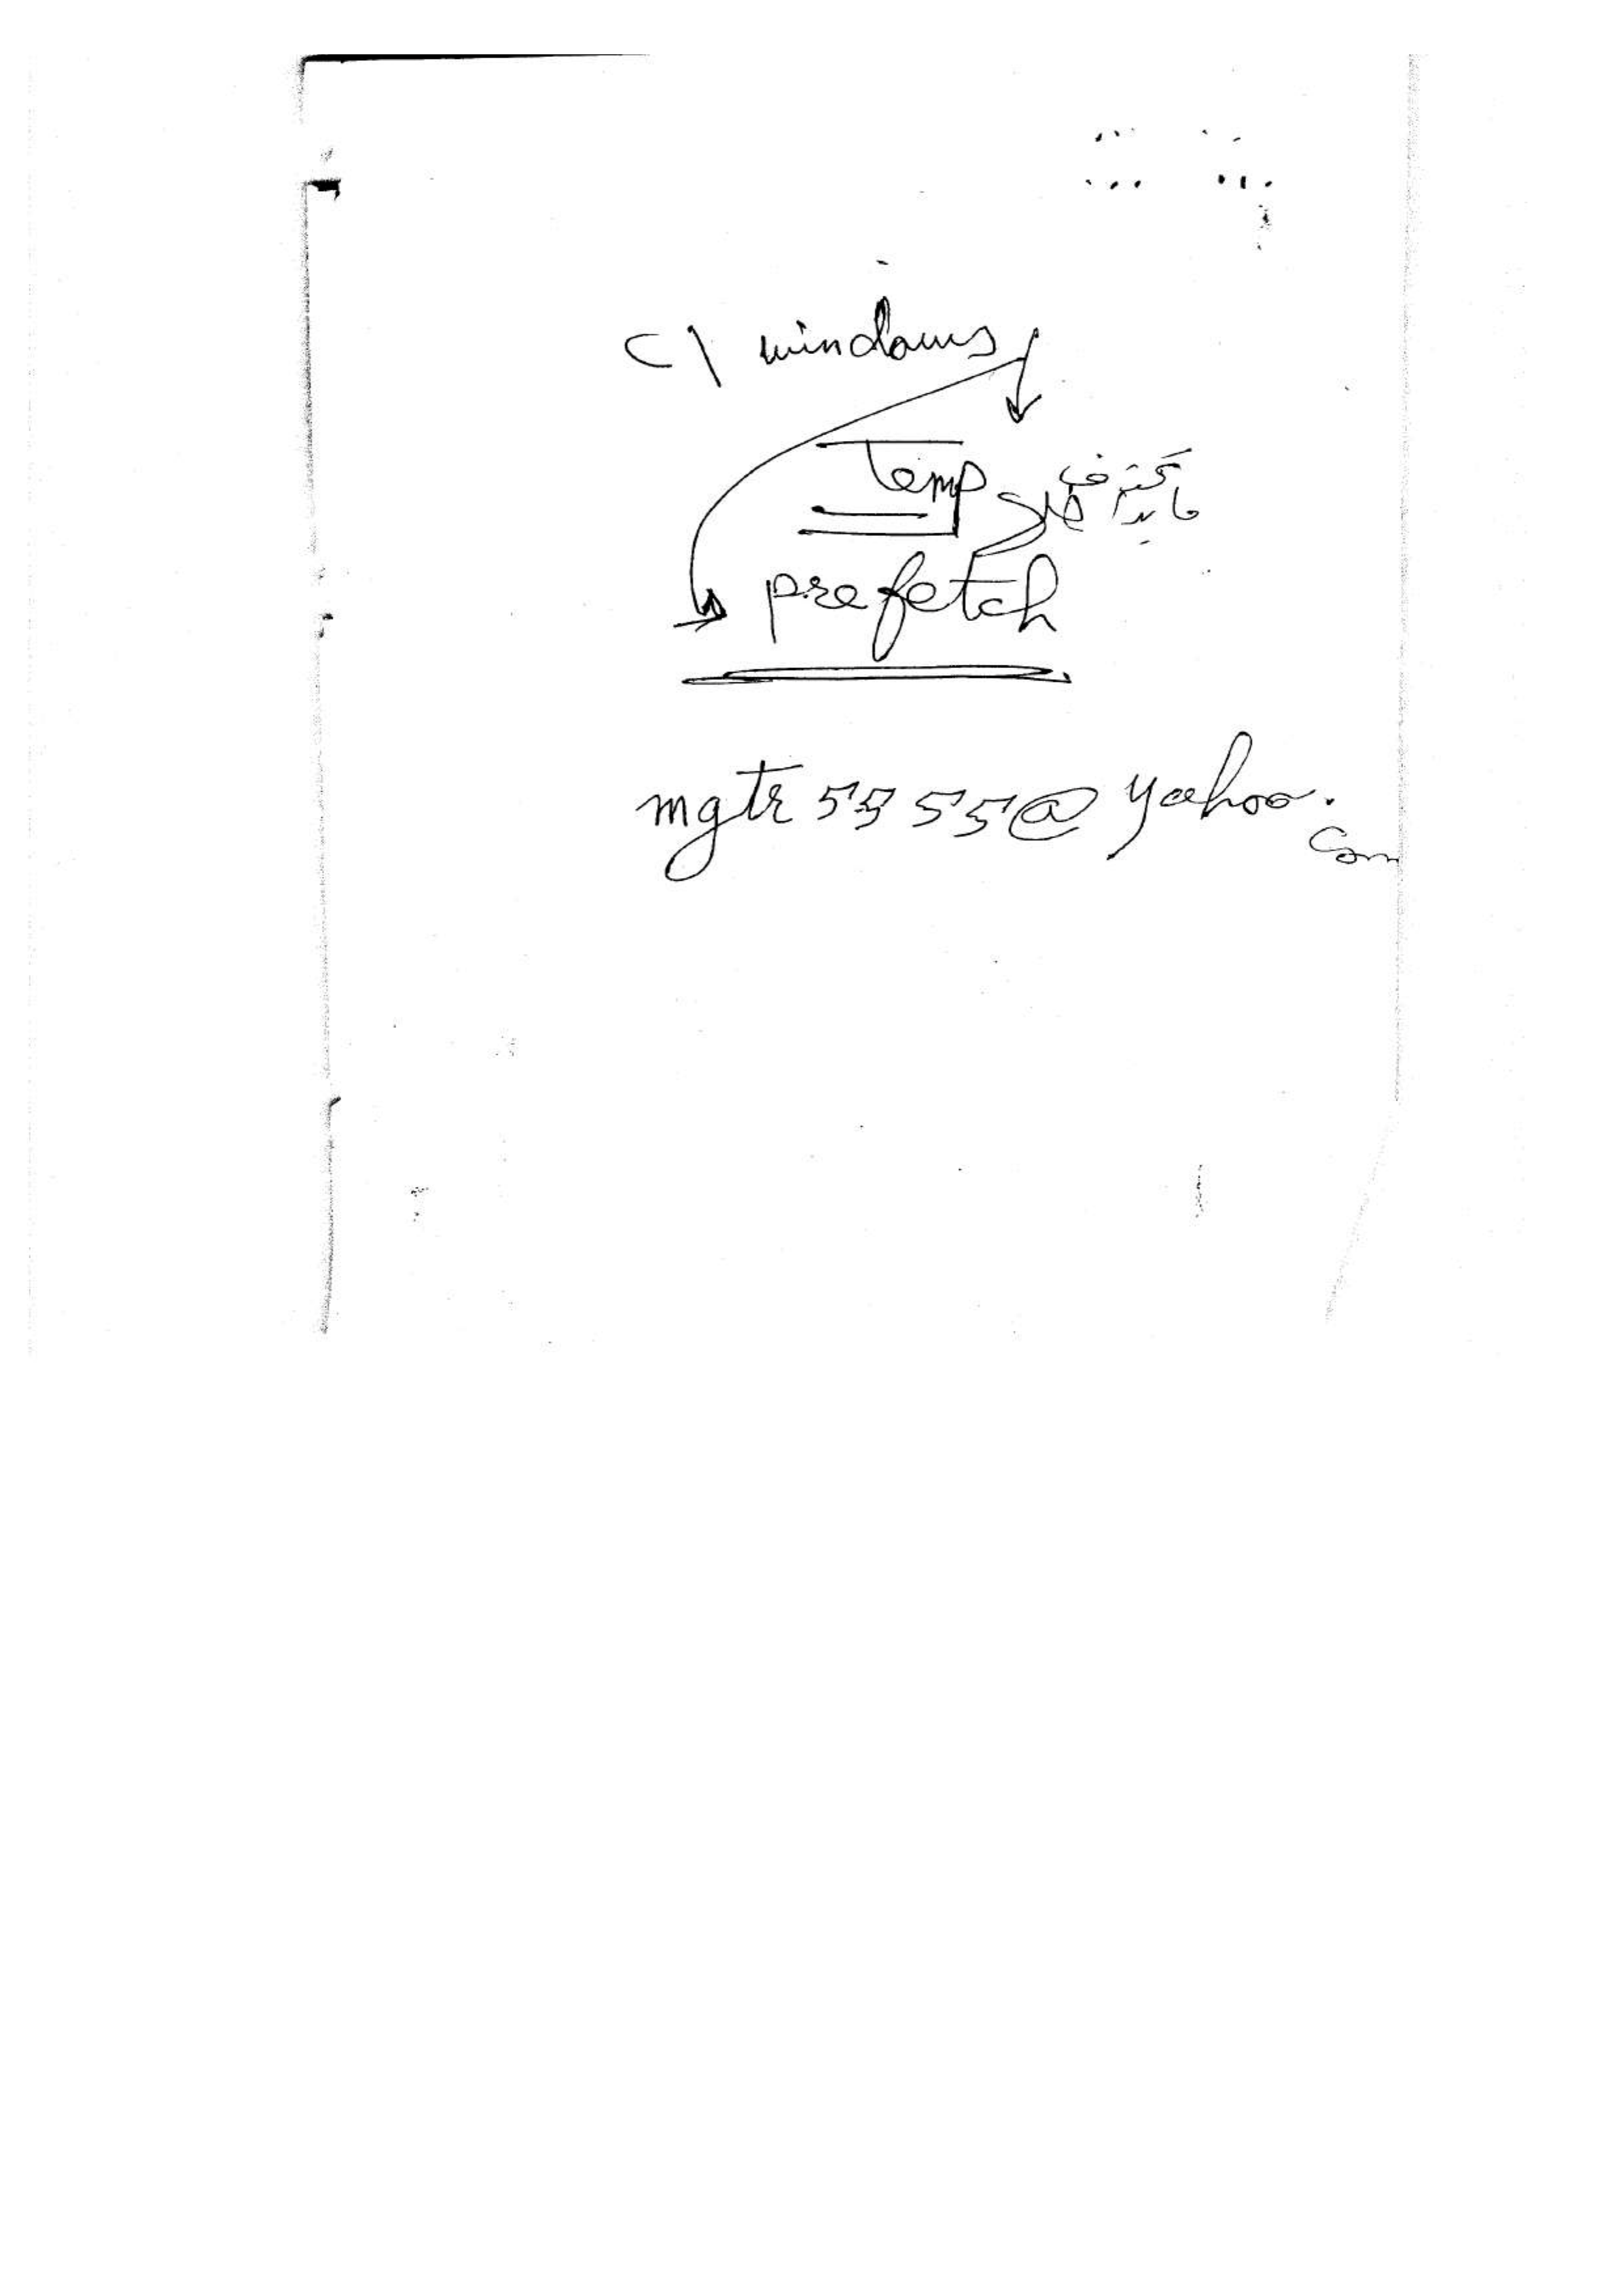 c\ windows
Temp
prefetch
mgtr5555@yahoo.
com